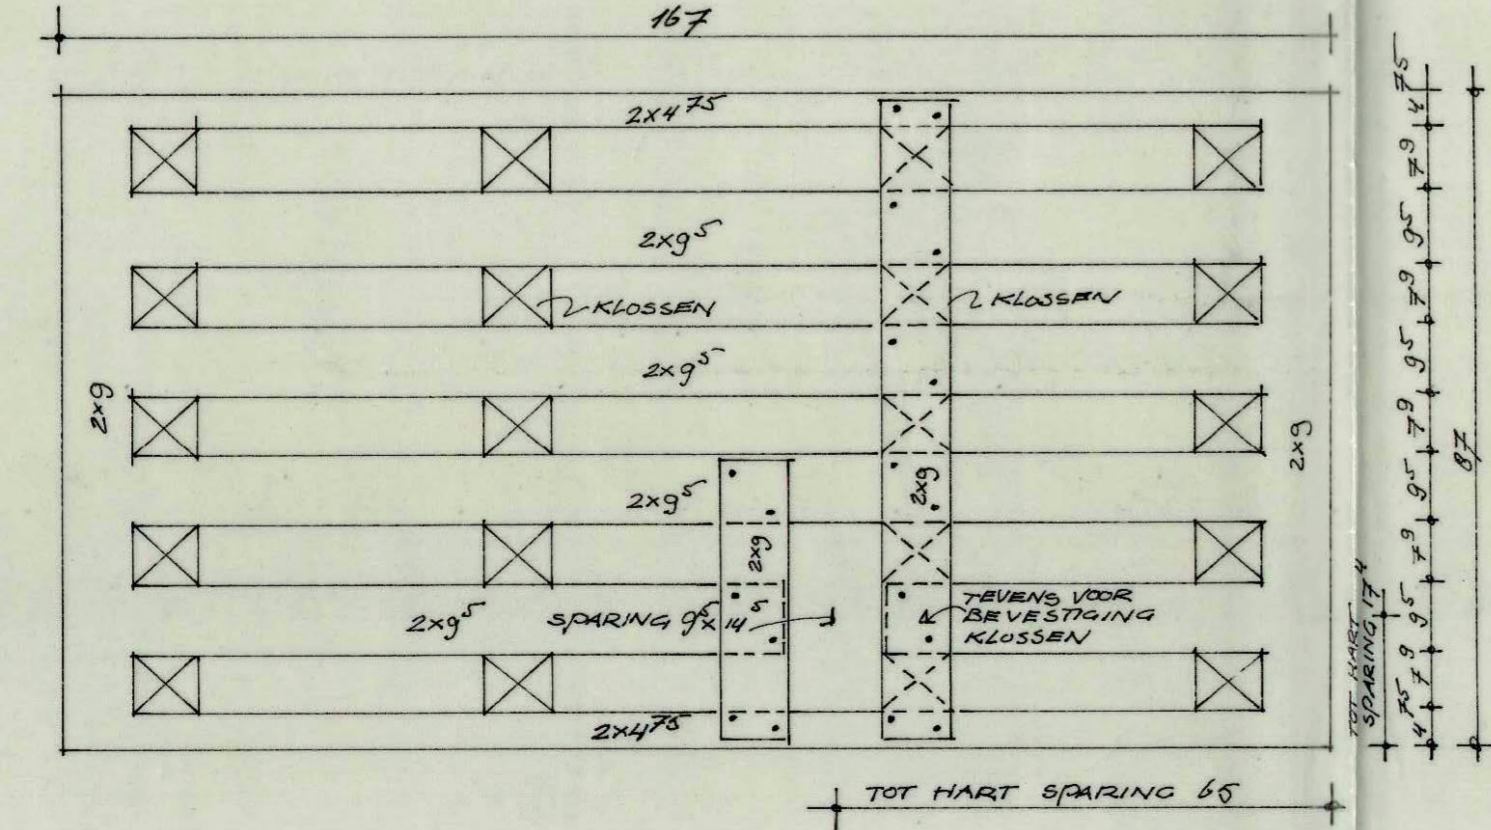 167
2x4⁷⁵
2x9⁵
KLOSSEN
KLOSSEN
2x9⁵
2x9
2x9
2x9⁵
2x9
2x9
2x9⁵
SPARING 9⁵x 14⁵
TEVENS VOOR
BEVESTIGING
KLOSSEN
2x4⁷⁵
TOT HART SPARING 65
TOT HART
SPARING 17⁴
4⁷⁵ 7⁹ 9⁵ 7⁹ 9⁵ 7⁹ 9⁵ 7⁹ 9⁵ 7⁹ 4⁷⁵
87